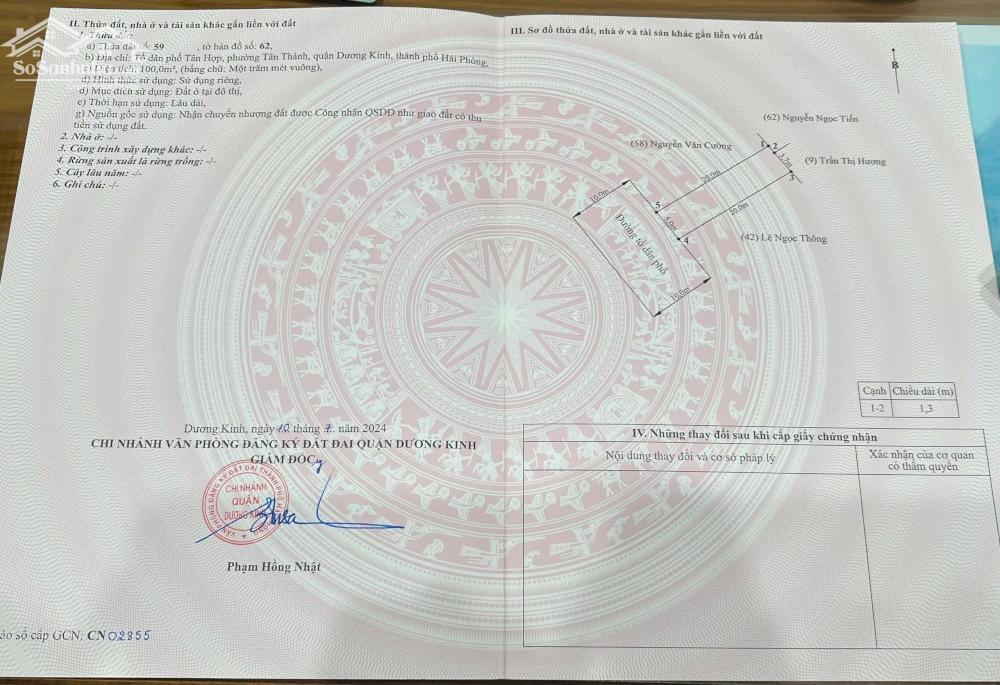 II. Thửa đất, nhà ở và tài sản khác gắn liền với đất
1. Thửa đất:
a) Thửa đất số: 59 , tờ bản đồ số: 62,
b) Địa chỉ: Tổ dân phố Tân Hợp, phường Tân Thành, quận Dương Kinh, thành phố Hải Phòng,
c) Diện tích: 100,0m², (bằng chữ: Một trăm mét vuông),
d) Hình thức sử dụng: Sử dụng riêng,
đ) Mục đích sử dụng: Đất ở tại đô thị,
e) Thời hạn sử dụng: Lâu dài,
g) Nguồn gốc sử dụng: Nhận chuyển nhượng đất được Công nhận QSDĐ như giao đất có thu
tiền sử dụng đất.
2. Nhà ở: -/-
3. Công trình xây dựng khác: -/-
4. Rừng sản xuất là rừng trồng: -/-
5. Cây lâu năm: -/-
6. Ghi chú: -/-
Dương Kinh, ngày 10 tháng 7. năm 2024
CHI NHÁNH VĂN PHÒNG ĐĂNG KÝ ĐẤT ĐAI QUẬN DƯƠNG KINH
GIÁM ĐỐC
VĂN PHÒNG ĐĂNG KÝ ĐẤT ĐAI THÀNH PHỐ
CHI NHÁNH
QUẬN
DƯƠNG KINH
Phạm Hồng Nhật
số cấp GCN: CN 02855
III. Sơ đồ thửa đất, nhà ở và tài sản khác gắn liền với đất
B
(62) Nguyễn Ngọc Tiến
(58) Nguyễn Văn Cường
1 2
3,7m
(9) Trần Thị Hương
3
20,0m
20,0m
10,0m
5
5,0m
4
(42) Lê Ngọc Thông
Đường tổ dân phố
10,0m
Cạnh Chiều dài (m)
1-2 1,3
IV. Những thay đổi sau khi cấp giấy chứng nhận
Nội dung thay đổi và cơ sở pháp lý
Xác nhận của cơ quan
có thẩm quyền